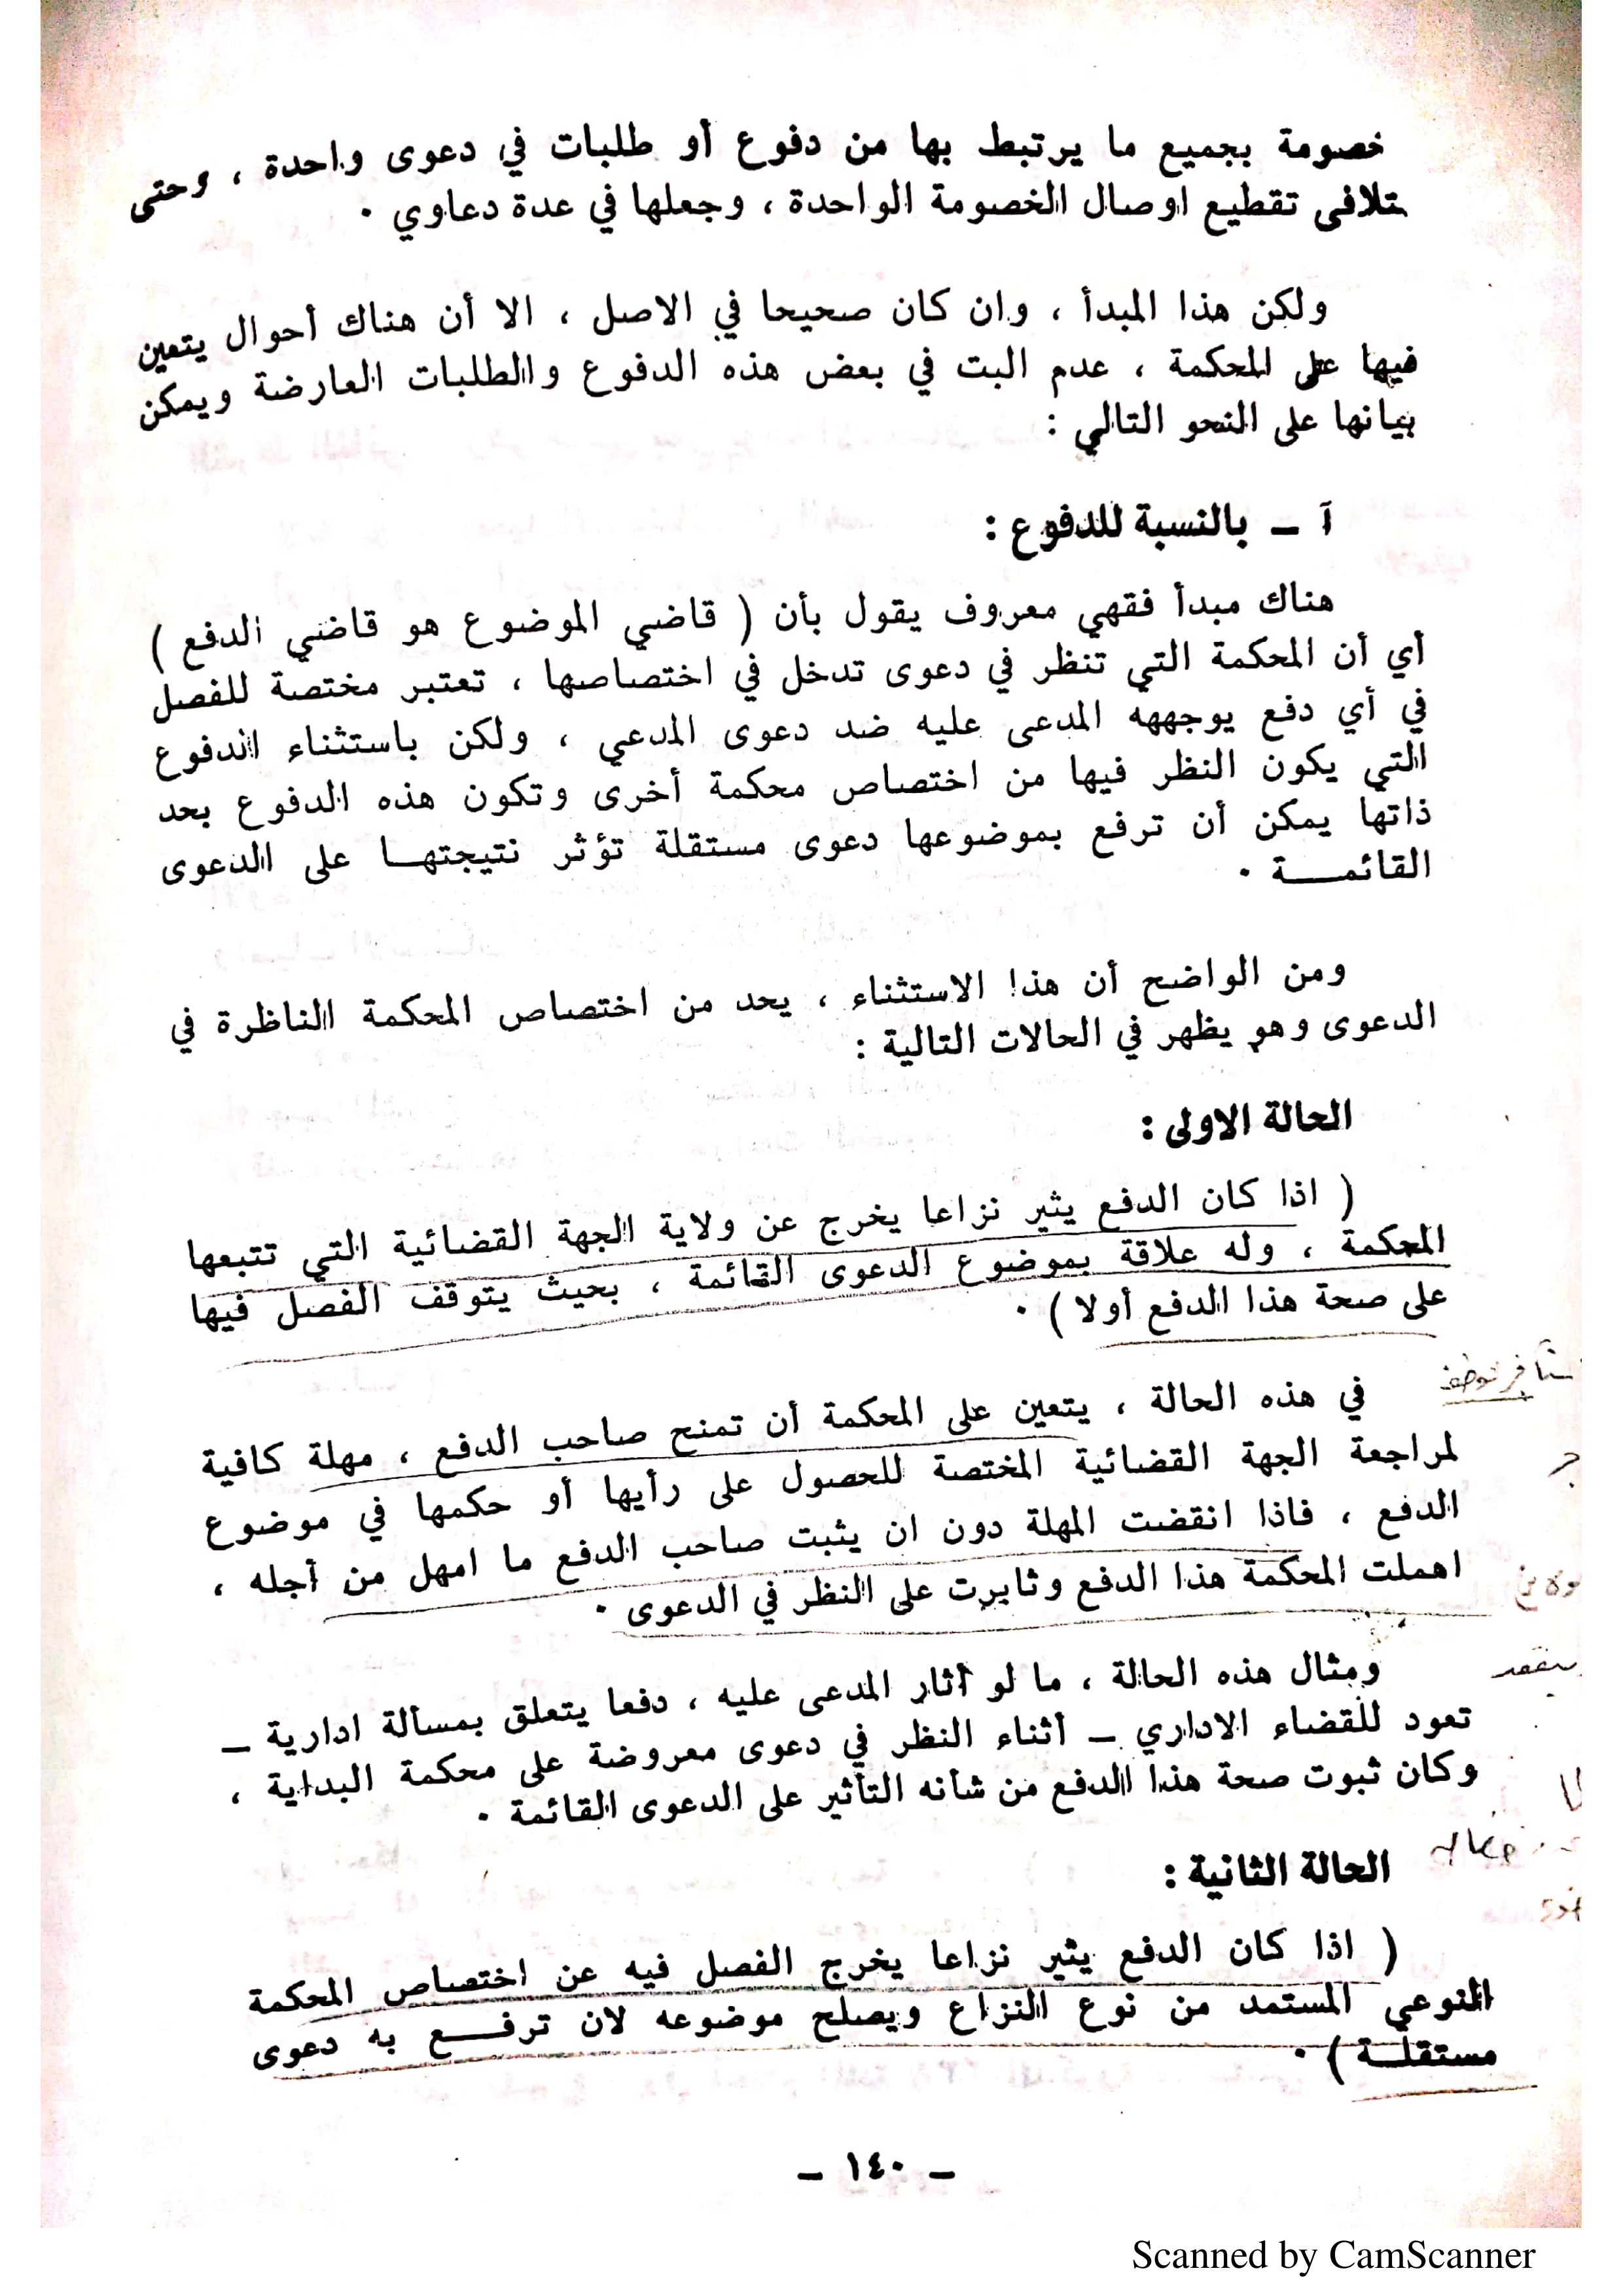 خصومة بجميع ما يرتبط بها من دفوع أو طلبات في دعوى واحدة ، وحتى
تتلافى تقطيع اوصال الخصومة الواحدة ، وجعلها في عدة دعاوي .
ولكن هذا المبدأ ، وان كان صحيحا في الاصل ، الا أن هناك أحوال يتعين
فيها على المحكمة ، عدم البت في بعض هذه الدفوع والطلبات العارضة ويمكن
بيانها على النحو التالي :
آ – بالنسبة للدفوع :
هناك مبدأ فقهي معروف يقول بأن ( قاضي الموضوع هو قاضي الدفع )
أي أن المحكمة التي تنظر في دعوى تدخل في اختصاصها ، تعتبر مختصة للفصل
في أي دفع يوجهه المدعى عليه ضد دعوى المدعي ، ولكن باستثناء الدفوع
التي يكون النظر فيها من اختصاص محكمة أخرى وتكون هذه الدفوع بحد
ذاتها يمكن أن ترفع بموضوعها دعوى مستقلة تؤثر نتيجتهـا على الدعوى
القائمـــة .
ومن الواضح أن هذا الاستثناء ، يحد من اختصاص المحكمة الناظرة في
الدعوى وهو يظهر في الحالات التالية :
الحالة الاولى :
( اذا كان الدفع يثير نزاعا يخرج عن ولاية الجهة القضائية التي تتبعها
المحكمة ، وله علاقة بموضوع الدعوى القائمة ، بحيث يتوقف الفصل فيها
على صحة هذا الدفع أولا ) .
في هذه الحالة ، يتعين على المحكمة أن تمنح صاحب الدفع ، مهلة كافية
لمراجعة الجهة القضائية المختصة للحصول على رأيها أو حكمها في موضوع
الدفع ، فاذا انقضت المهلة دون ان يثبت صاحب الدفع ما امهل من أجله ،
اهملت المحكمة هذا الدفع وثابرت على النظر في الدعوى .
ومثال هذه الحالة ، ما لو أثار المدعى عليه ، دفعا يتعلق بمسألة ادارية –
تعود للقضاء الاداري – أثناء النظر في دعوى معروضة على محكمة البداية ،
وكان ثبوت صحة هذا الدفع من شأنه التأثير على الدعوى القائمة .
الحالة الثانية :
( اذا كان الدفع يثير نزاعا يخرج الفصل فيه عن اختصاص المحكمة
النوعي المستمد من نوع النزاع ويصلح موضوعه لان ترفـــع به دعوى
مستقلـة ) .
– ١٤٠ –
Scanned by CamScanner